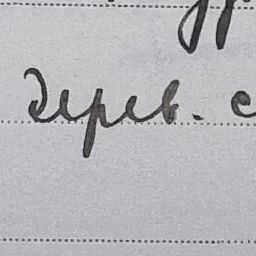 дерев. с